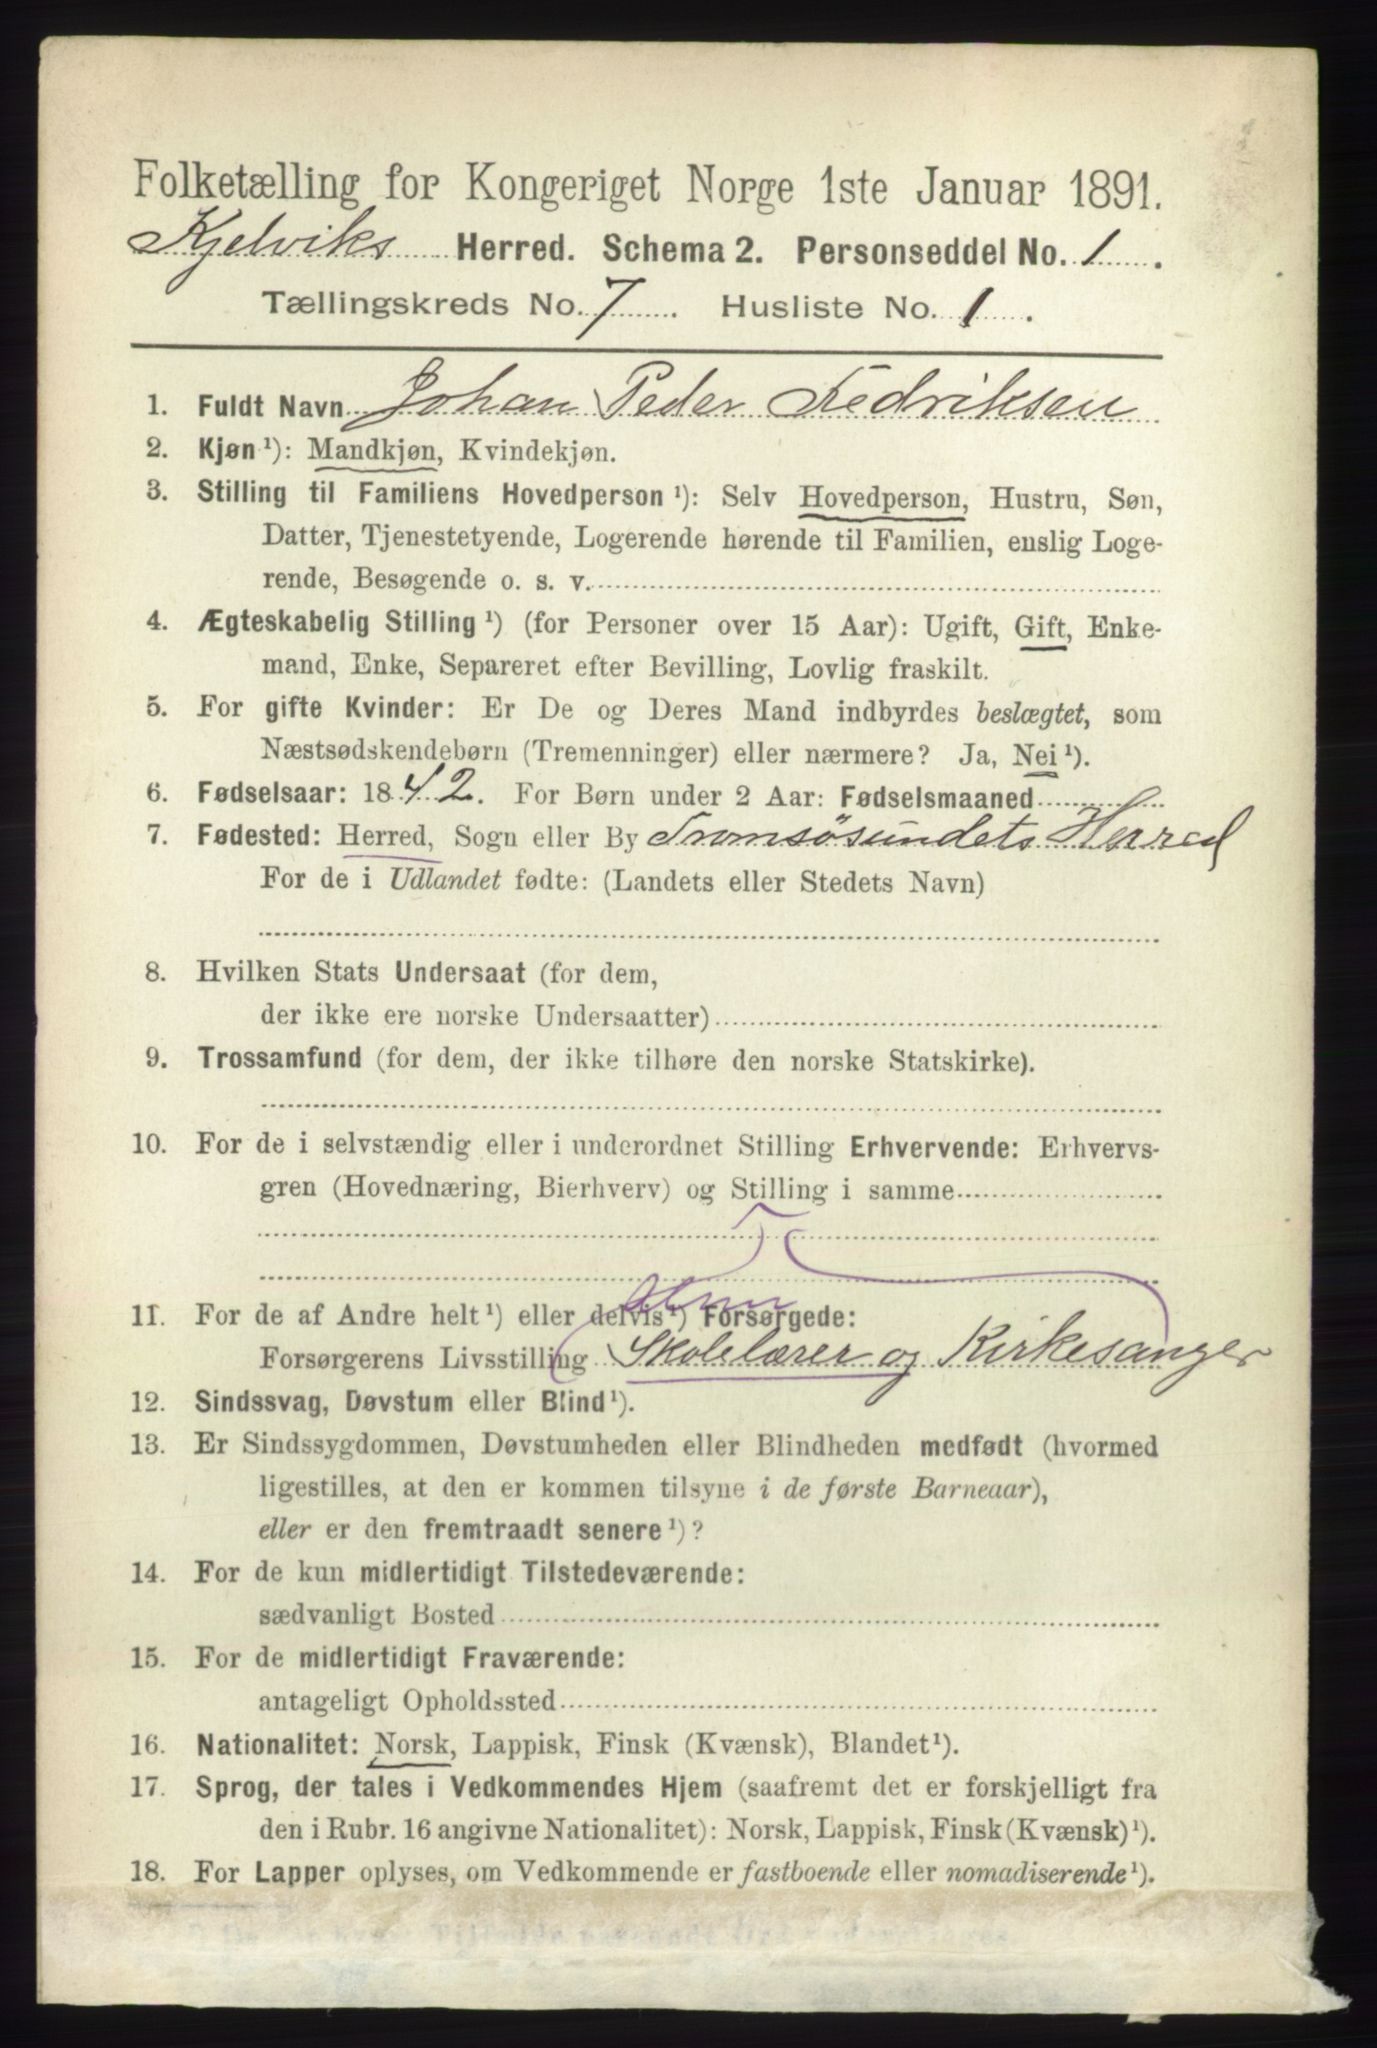 Folketælling for Kongeriget Norge 1ste Januar 1891.
Kjelviks Herred. Schema 2. Personseddel No. 1.
Tællingskreds No. 7. Husliste No. 1.
1. Fuldt Navn Johan Peder Fedriksen
2. Kjøn¹): Mandkjøn, Kvindekjøn.
3. Stilling til Familiens Hovedperson¹): Selv Hovedperson, Hustru, Søn,
Datter, Tjenestetyende, Logerende hørende til Familien, enslig Loge-
rende, Besøgende o. s. v.
4. Ægteskabelig Stilling¹) (for Personer over 15 Aar): Ugift, Gift, Enke-
mand, Enke, Separeret efter Bevilling, Lovlig fraskilt.
5. For gifte Kvinder: Er De og Deres Mand indbyrdes beslægtet, som
Næstsødskendebørn (Tremenninger) eller nærmere? Ja, Nei¹).
6. Fødselsaar: 1842. For Børn under 2 Aar: Fødselsmaaned
7. Fødested: Herred, Sogn eller By Tromsøsundets Herred
For de i Udlandet fødte: (Landets eller Stedets Navn)
8. Hvilken Stats Undersaat (for dem,
der ikke ere norske Undersaatter)
9. Trossamfund (for dem, der ikke tilhøre den norske Statskirke).
10. For de i selvstændig eller i underordnet Stilling Erhvervende: Erhvervs-
gren (Hovednæring, Bierhverv) og Stilling i samme
11. For de af Andre helt¹) eller delvis¹) Forsørgede:
Forsørgerens Livsstilling Skolelærer og Kirkesanger
12. Sindssvag, Døvstum eller Blind¹).
13. Er Sindssygdommen, Døvstumheden eller Blindheden medfødt (hvormed
ligestilles, at den er kommen tilsyne i de første Barneaar),
eller er den fremtraadt senere¹)?
14. For de kun midlertidigt Tilstedeværende:
sædvanligt Bosted
15. For de midlertidigt Fraværende:
antageligt Opholdssted
16. Nationalitet: Norsk, Lappisk, Finsk (Kvænsk), Blandet¹).
17. Sprog, der tales i Vedkommendes Hjem (saafremt det er forskjelligt fra
den i Rubr. 16 angivne Nationalitet): Norsk, Lappisk, Finsk (Kvænsk)¹).
18. For Lapper oplyses, om Vedkommende er fastboende eller nomadiserende¹).